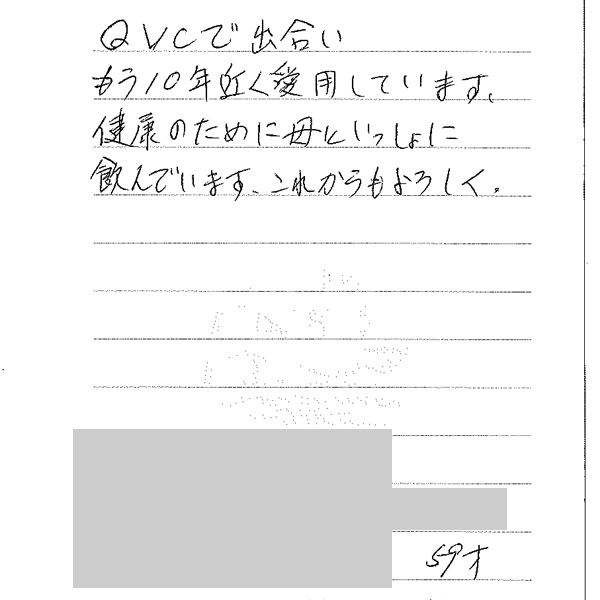 QVCで出合い
もう10年近く愛用しています。
健康のために母といっしょに
飲んでいます、これからもよろしく。
59才